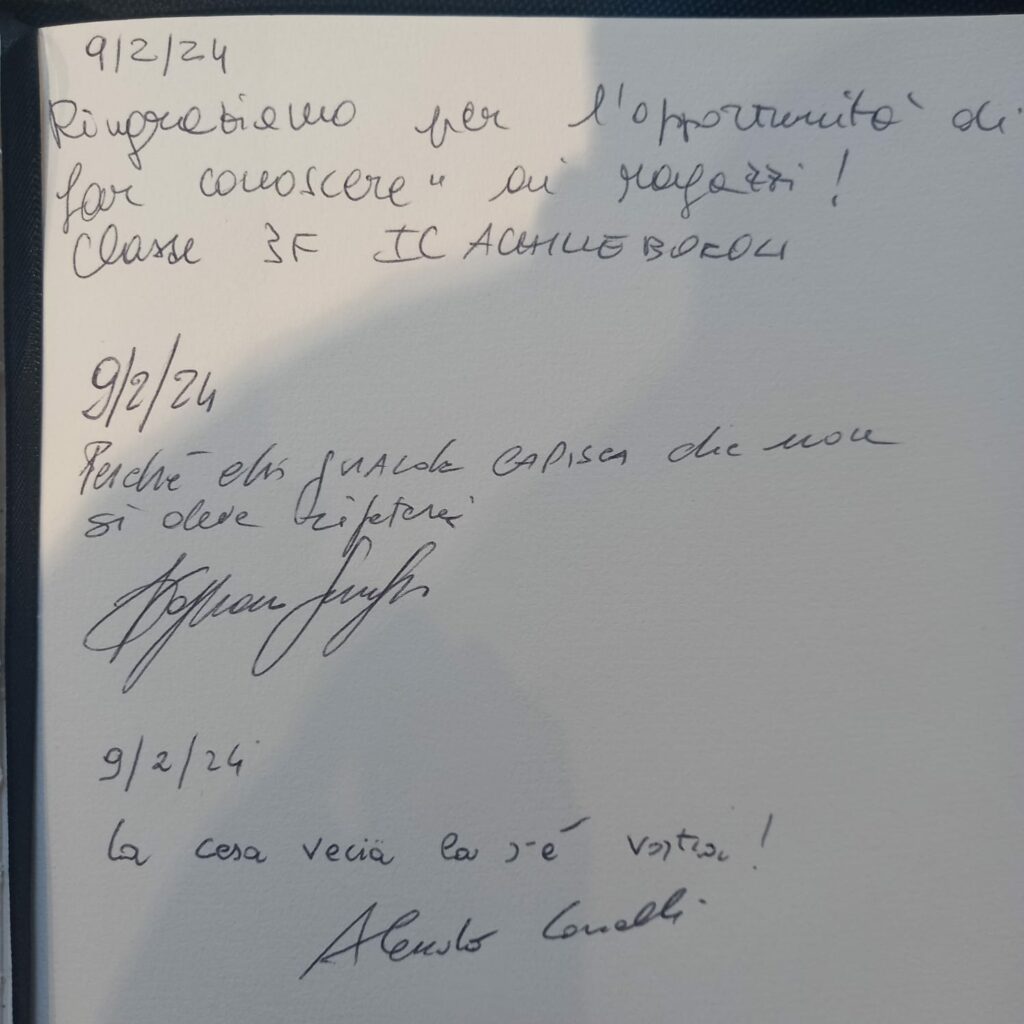 9/2/24
Ringraziamo per l'opportunità di
far conoscere" ai ragazzi!
Classe 3F IC ACHILLE BOROLI
9/2/24
Perché chi guarda CAPISCA che non
si deve ripetere
9/2/24
la casa vecia la s'é vostra!